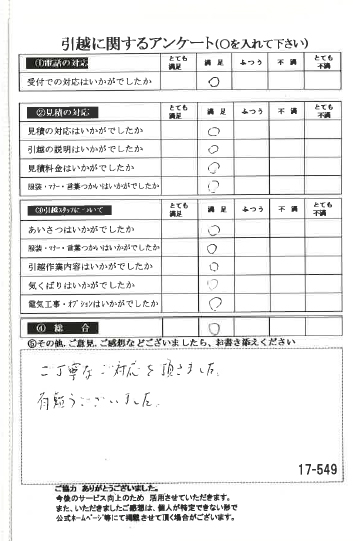 引越に関するアンケート(○を入れて下さい)
①電話の対応 とても満足 満足 ふつう 不満 とても不満
受付での対応はいかがでしたか ○
②見積の対応 とても満足 満足 ふつう 不満 とても不満
見積の対応はいかがでしたか ○
引越の説明はいかがでしたか ○
見積料金はいかがでしたか ○
服装・マナー・言葉づかいはいかがでしたか ○
③引越スタッフについて とても満足 満足 ふつう 不満 とても不満
あいさつはいかがでしたか ○
服装・マナー・言葉つかいはいかがでしたか ○
引越作業内容はいかがでしたか ○
気くばりはいかがでしたか ○
電気工事・オプションはいかがでしたか ○
④総合 ○
⑤その他、ご意見、ご感想などございましたら、お書き添えください
ご丁寧なご対応を頂きました。
有難うございました。
17-549
ご協力 ありがとうございました。
今後のサービス向上のため 活用させていただきます。
また、いただきましたご感想は、個人が特定できない形で
公式ホームページ等にて掲載させて頂く場合がございます。